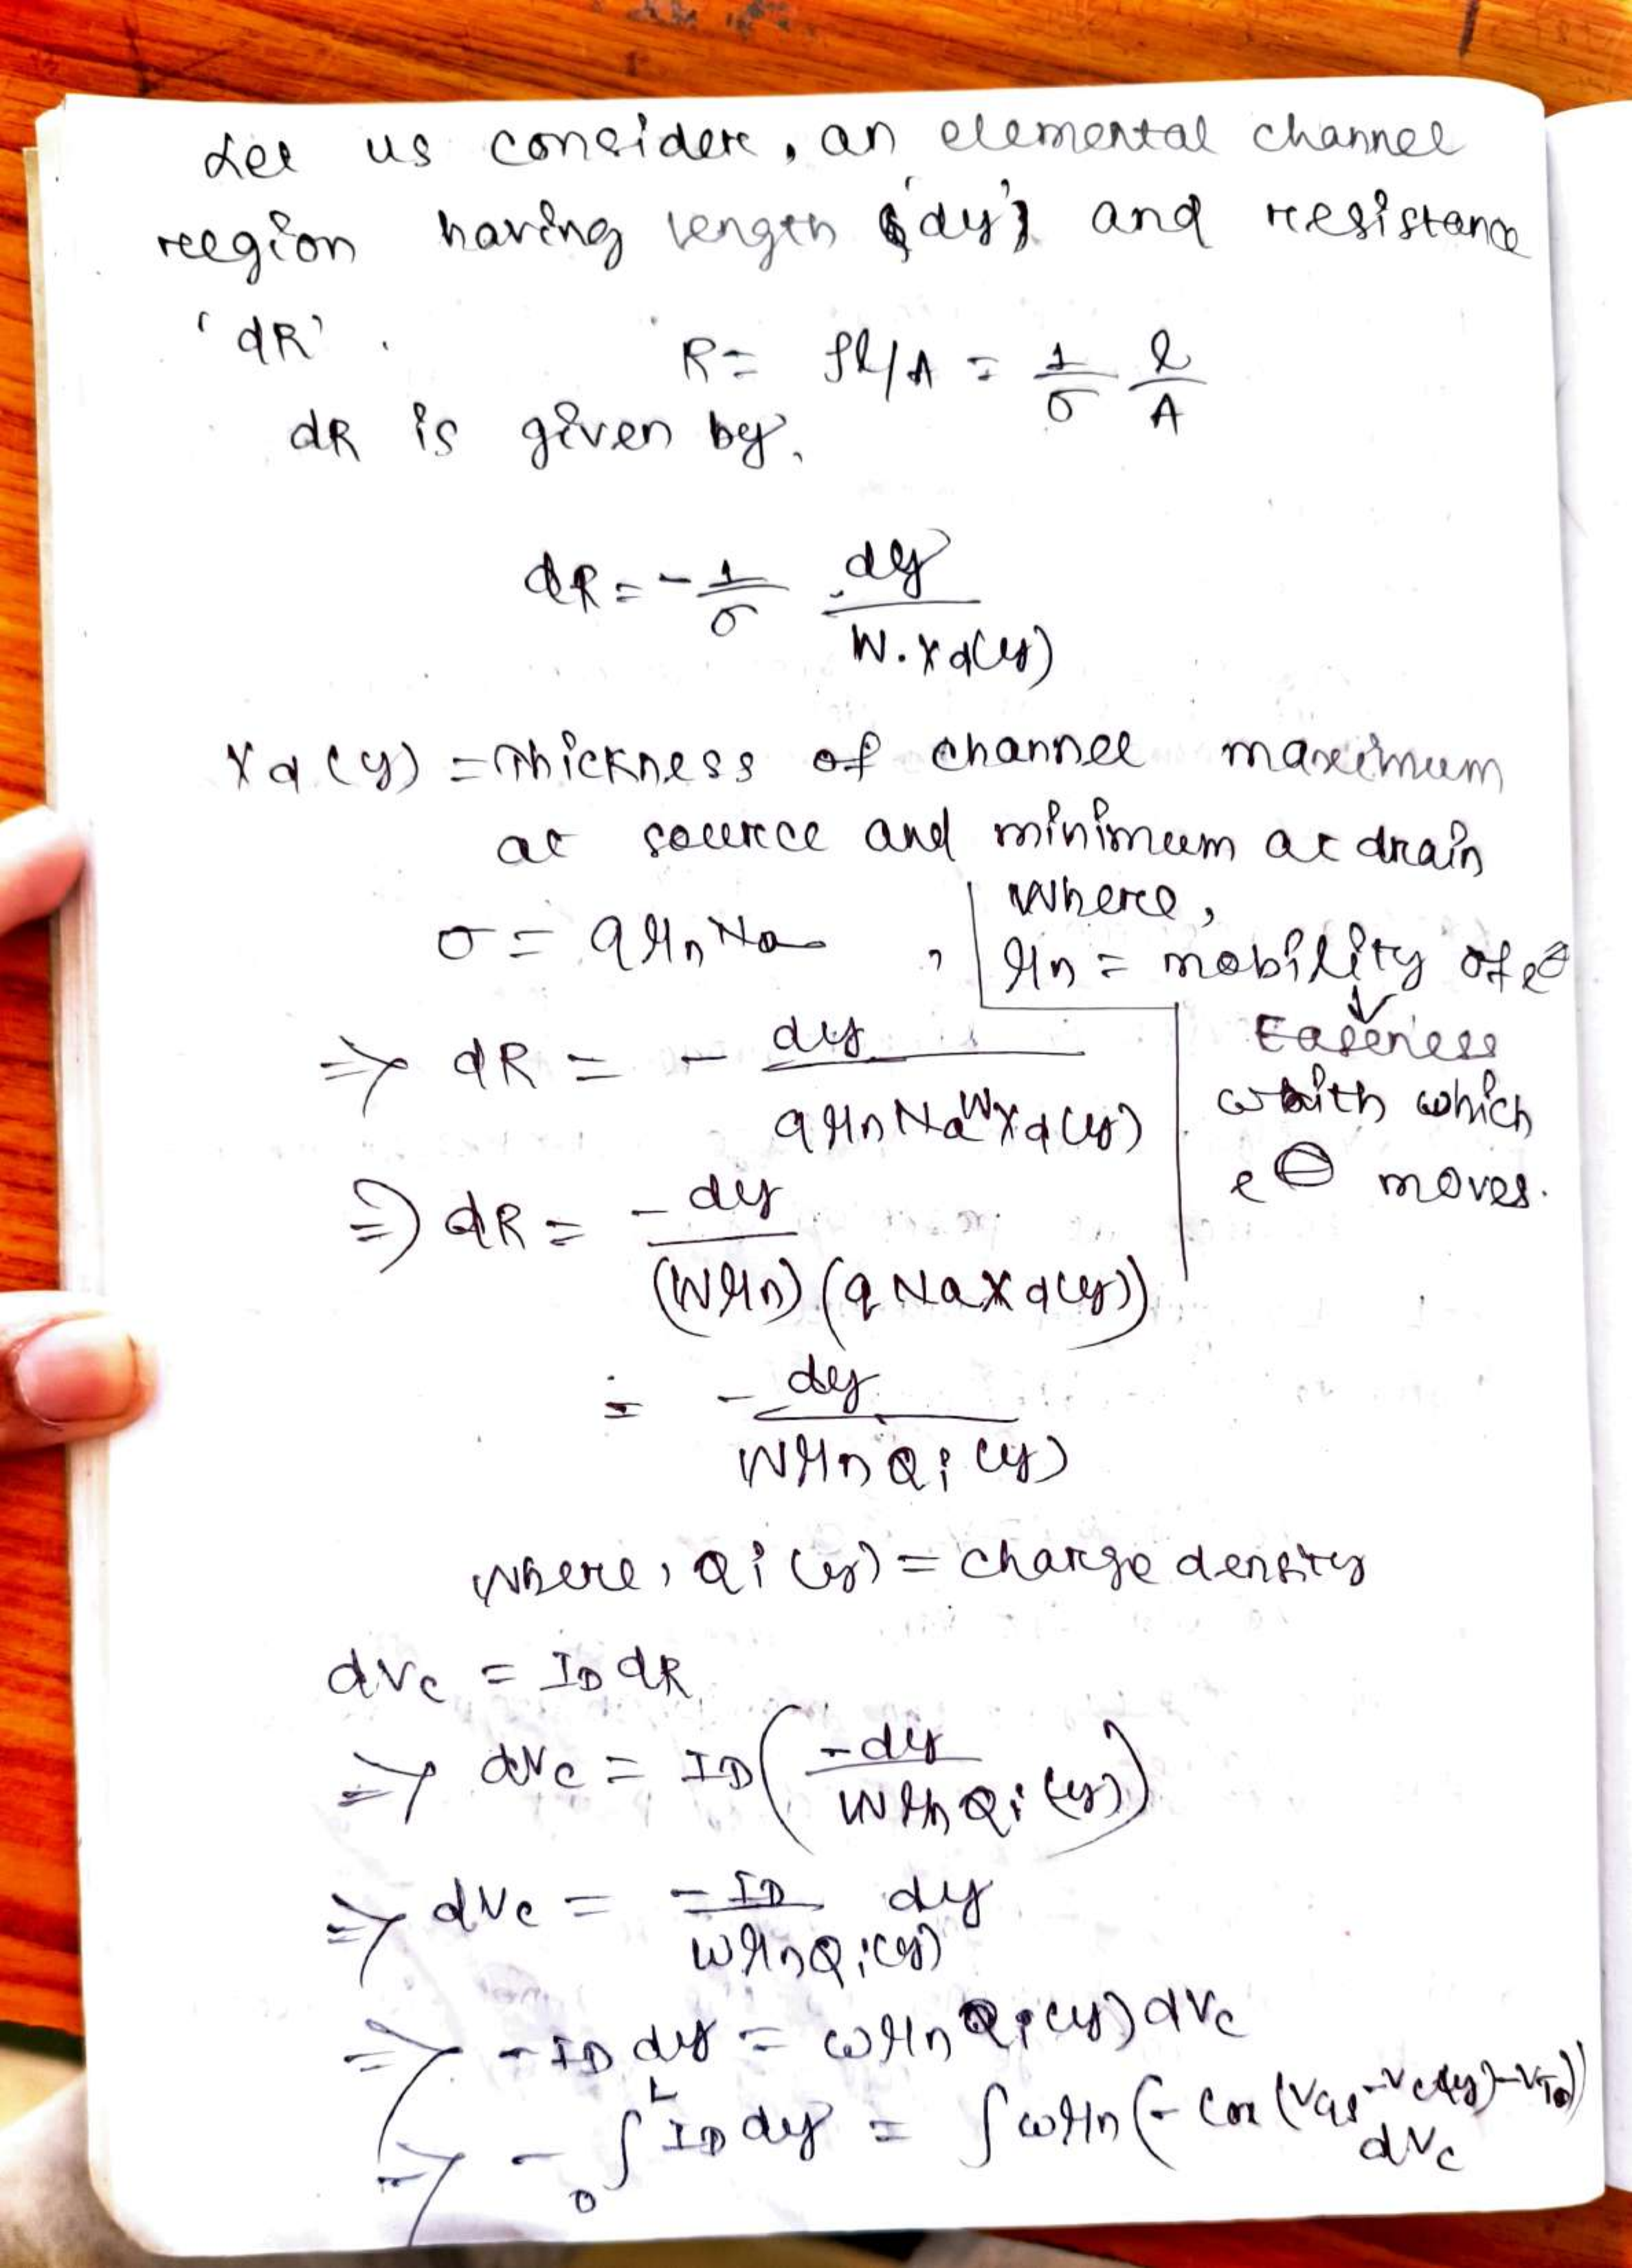 Let us consider, an elemental channel
region having length 'dy' and resistance
'dR'.
R = ρl/A = 1/σ l/A
dR is given by,
dR = - 1/σ dy/W.Xd(y)
Xd(y) = Thickness of channel maximum
at source and minimum at drain
σ = qμnNa ,
where,
μn = mobility of e⊖
↓
Easeness
with which
e⊖ moves.
⇒ dR = - dy/qμnNaWXd(y)
⇒ dR = -dy/(Wμn)(qNaXd(y))
= -dy/WμnQi(y)
where, Qi(y) = charge density
dVc = ID dR
⇒ dVc = ID(-dy/WμnQi(y))
⇒ dVc = -ID/WμnQi(y) dy
⇒ -ID dy = WμnQi(y)dVc
⇒ - ∫₀ᴸ ID dy = ∫Wμn(-Cox(VGS-Vc(y)-VT0)) dVc